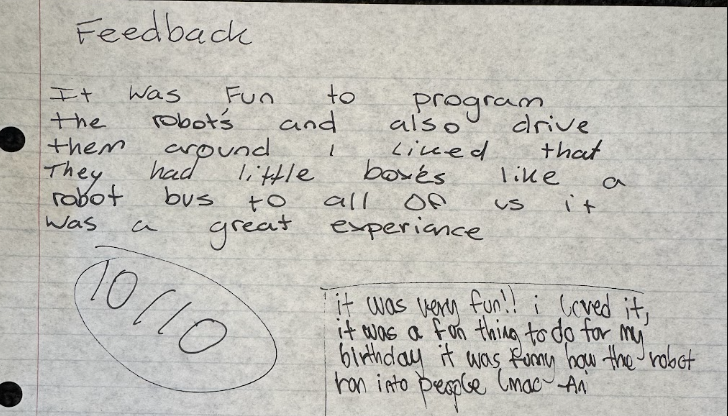 Feedback
It was Fun to program
the robot's and also drive
them around i liked that
They had little boxes like a
robot bus to all OF us it
was a great experiance
10/10
it was very fun!! i loved it,
it was a fun thing to do for my
birthday it was funny how the robot
ran into people